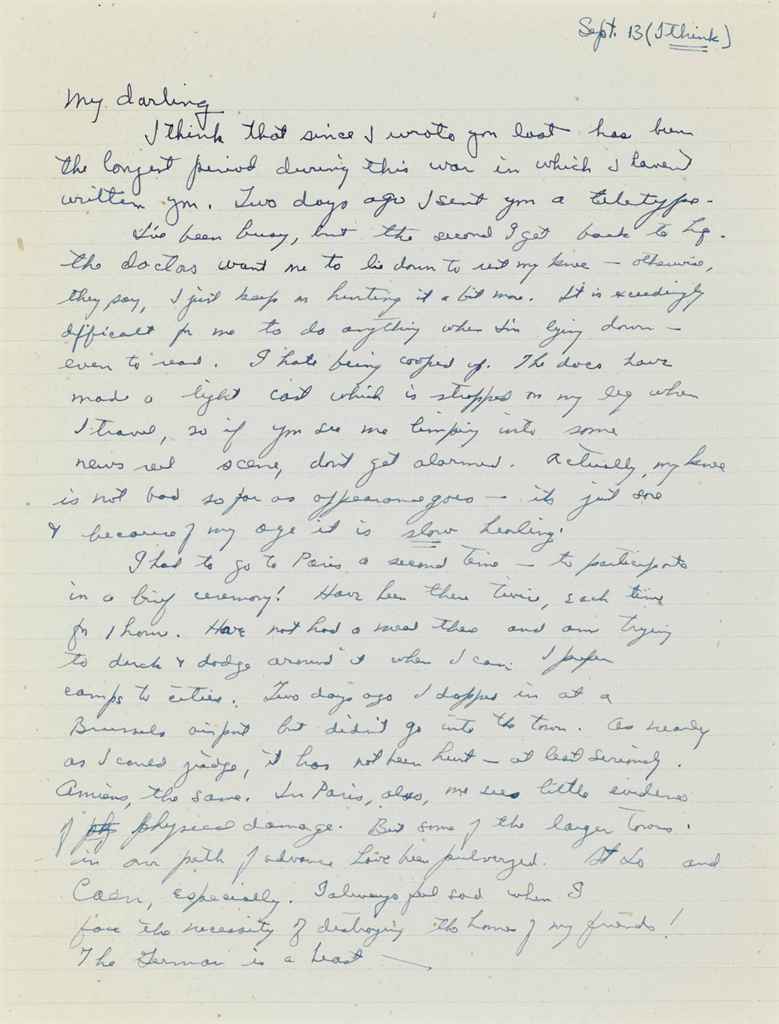 Sept. 13 (I think)
My darling
I think that since I wrote you last has been
the longest period during this war in which I haven't
written you. Two days ago I sent you a teletype.
I've been busy, but the second I get back to Hq.
the doctors want me to lie down to rest my knee – otherwise,
they say, I just keep on hurting it a bit more. It is exceedingly
difficult for me to do anything when I'm lying down –
even to read. I hate being cooped up. The docs have
made a light cast which is strapped on my leg when
I travel, so if you see me limping into some
news reel scene, don't get alarmed. Actually, my knee
is not bad so far as appearance goes – its just sore
& because of my age it is slow healing.
I had to go to Paris a second time – to participate
in a brief ceremony! Have been there twice, each time
for 1 hour. Have not had a meal there and am trying
to duck & dodge around it when I can. I prefer
camps to cities. Two days ago I dropped in at a
Brussels airport but didn't go into the town. As nearly
as I could judge, it has not been hurt – at least seriously.
Amiens, the same. In Paris, also, one sees little evidence
of physical damage. But some of the larger towns
in our path of advance have been pulverized. St Lo and
Caen, especially. I always feel sad when I
face the necessity of destroying the homes of my friends!
The German is a beast –